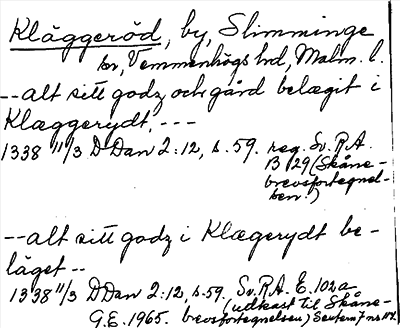 Kläggeröd, by, Slimminge
sn, Vemmenhögs hd, Malm. l.
--alt sitt godz och gård belægit i
Klæggerydt, ---
1338 11/3 D Dan 2:12, s. 59. reg. Sv. R.A.
B 129 (Skåne-
brevsfortegnel-
sen.)
--alt sitt godz i Klægerydt be-
läget --
1338 11/3 D Dan 2:12, s. 59. Sv. R.A. E. 102a
(udkast til Skåne-
G.E. 1965. brevsfortegnelsen)